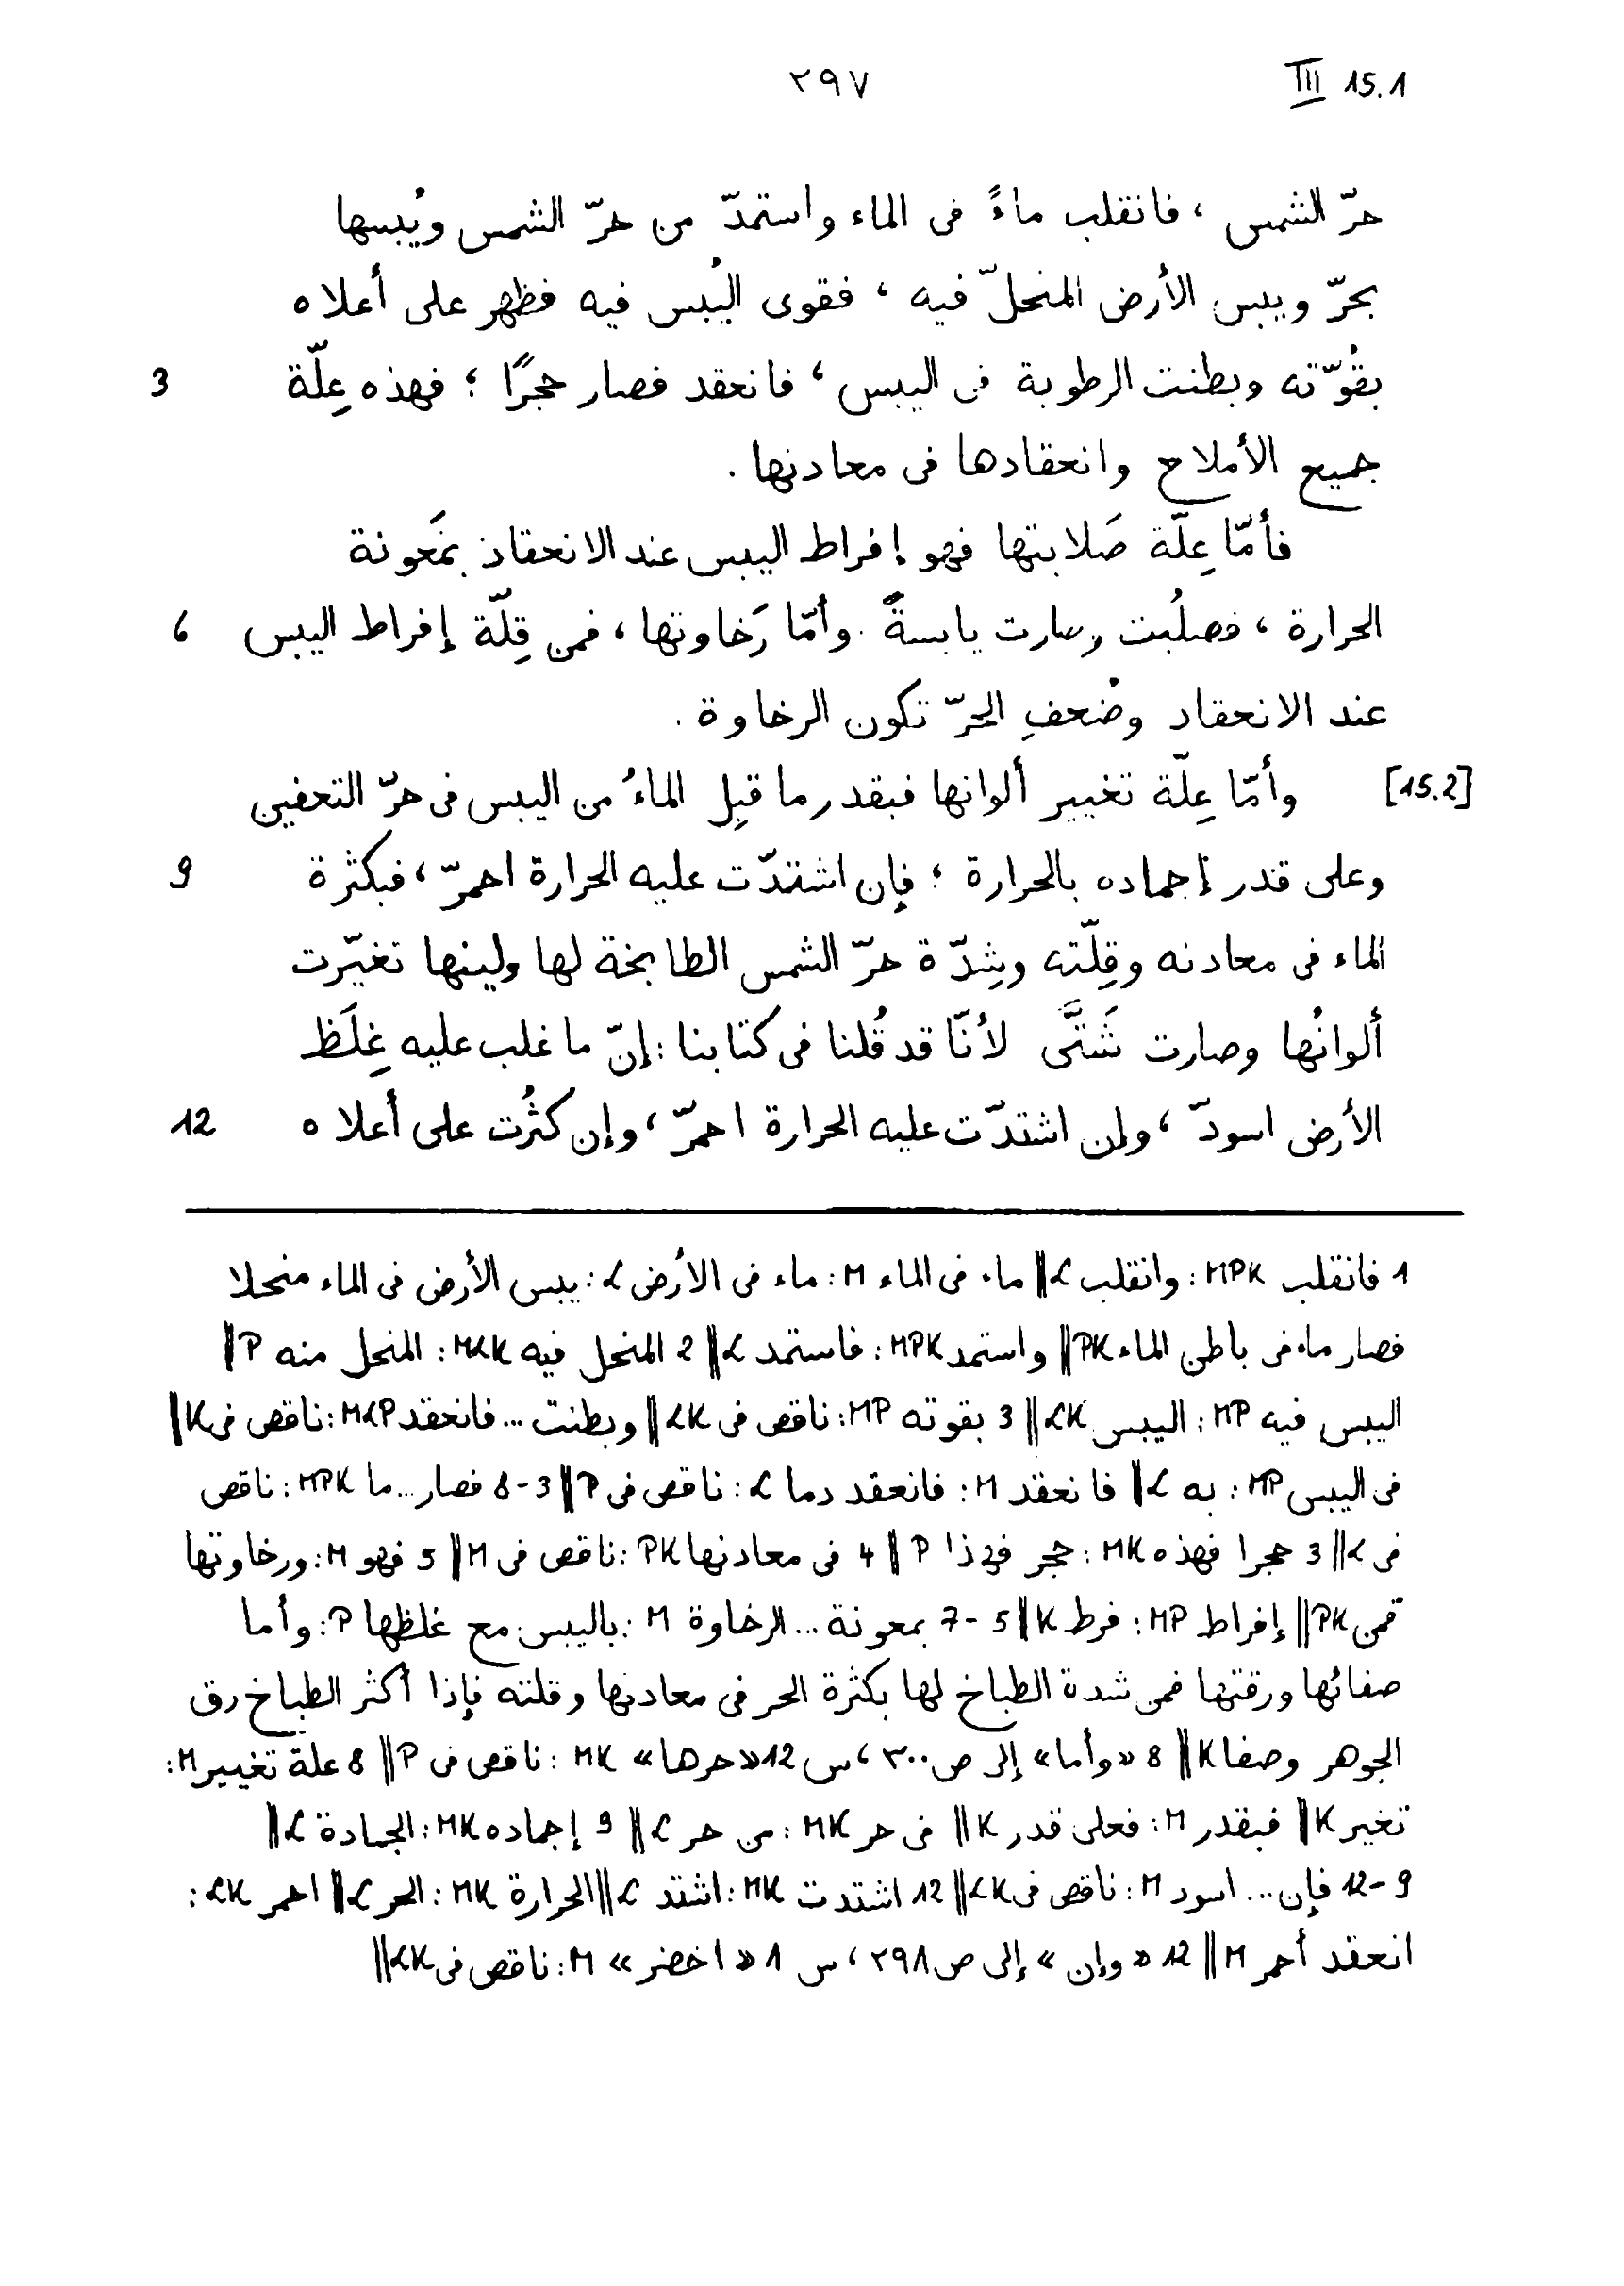 ٢٩٧ III 15.1
حرّ الشمس ، فانقلب ماءً فى الماء واستمدّ من حرّ الشمس ويُبسها
بحرّ ويبس الأرض المنحلّ فيه ، فقوى اليُبس فيه فظهر على أعلاه
بقُوّته وبطنت الرطوبة فى اليبس ، فانعقد فصار حجرًا ؛ فهذه عِلّة 3
جميع الأملاح وانعقادها فى معادنها .
فأمّا عِلّة صَلابتها فهو إفراط اليبس عند الانعقاد بمَعونة
الحرارة ، فصلُبت وصارت يابسةً . وأمّا رَخاوتها ، فمن قِلّة إفراط اليبس 6
عند الانعقاد وضُعفِ الحرّ تكون الرخاوة .
[15.2] وأمّا عِلّة تغيير ألوانها فبقدر ما قبِل الماءُ من اليبس فى حرّ التعفين
وعلى قدر إجماده بالحرارة ؛ فإن اشتدّت عليه الحرارة احمرّ ، فبكثرة 9
الماء فى معادنه وقِلّته وشِدّة حرّ الشمس الطابخة لها ولينها تغيّرت
ألوانُها وصارت شَتَّى لأنّا قد قُلنا فى كتابنا : إنّ ما غلب عليه غِلَظ
الأرض اسودّ ، وإن اشتدّت عليه الحرارة احمرّ ، وإن كثُرت على أعلاه 12
1 فانقلب MPK : وانقلب L || ماء فى الماء M : ماء فى الأرض L : يبس الأرض فى الماء منحلا
فصار ماء فى باطن الماء PK || واستمد MPK : فاستمد L || 2 المنحل فيه MLK : المنحل منه P ||
اليبس فيه MP : اليبس LK || 3 بقوته MP : ناقص فى LK || وبطنت ... فانعقد MLP : ناقص فى K ||
فى اليبس MP : به L || فانعقد M : فانعقد دما L : ناقص فى P || 3-8 فصار ... ما MPK : ناقص
فى L || 3 حجرا فهذه MK : حجر فهذا P || 4 فى معادنها PK : ناقص فى M || 5 فهو M : ورخاوتها
فمن PK || إفراط MP : فرط K || 5-7 بمعونة ... الرخاوة M : باليبس مع غلظها P : وأما
صفائها ورقتها فمن شدة الطباخ لها بكثرة الحر فى معادنها وقلته فإذا أكثر الطباخ رق
الجوهر وصفا K || 8 «وأما» إلى ص ٣٠٠ ، س 12 «حرها» MK : ناقص فى P || 8 علة تغيير M :
تغير K || فبقدر M : فعلى قدر K || فى حر MK : من حر L || 9 إجماده MK : الجمادة L ||
9-12 فإن ... اسود M : ناقص فى LK || 12 اشتدت MK : اشتد L || الحرارة MK : الحر L || احمر LK :
انعقد أحمر M || 12 «وإن» إلى ص ٢٩٨ ، س 1 «اخضر» M : ناقص فى LK ||